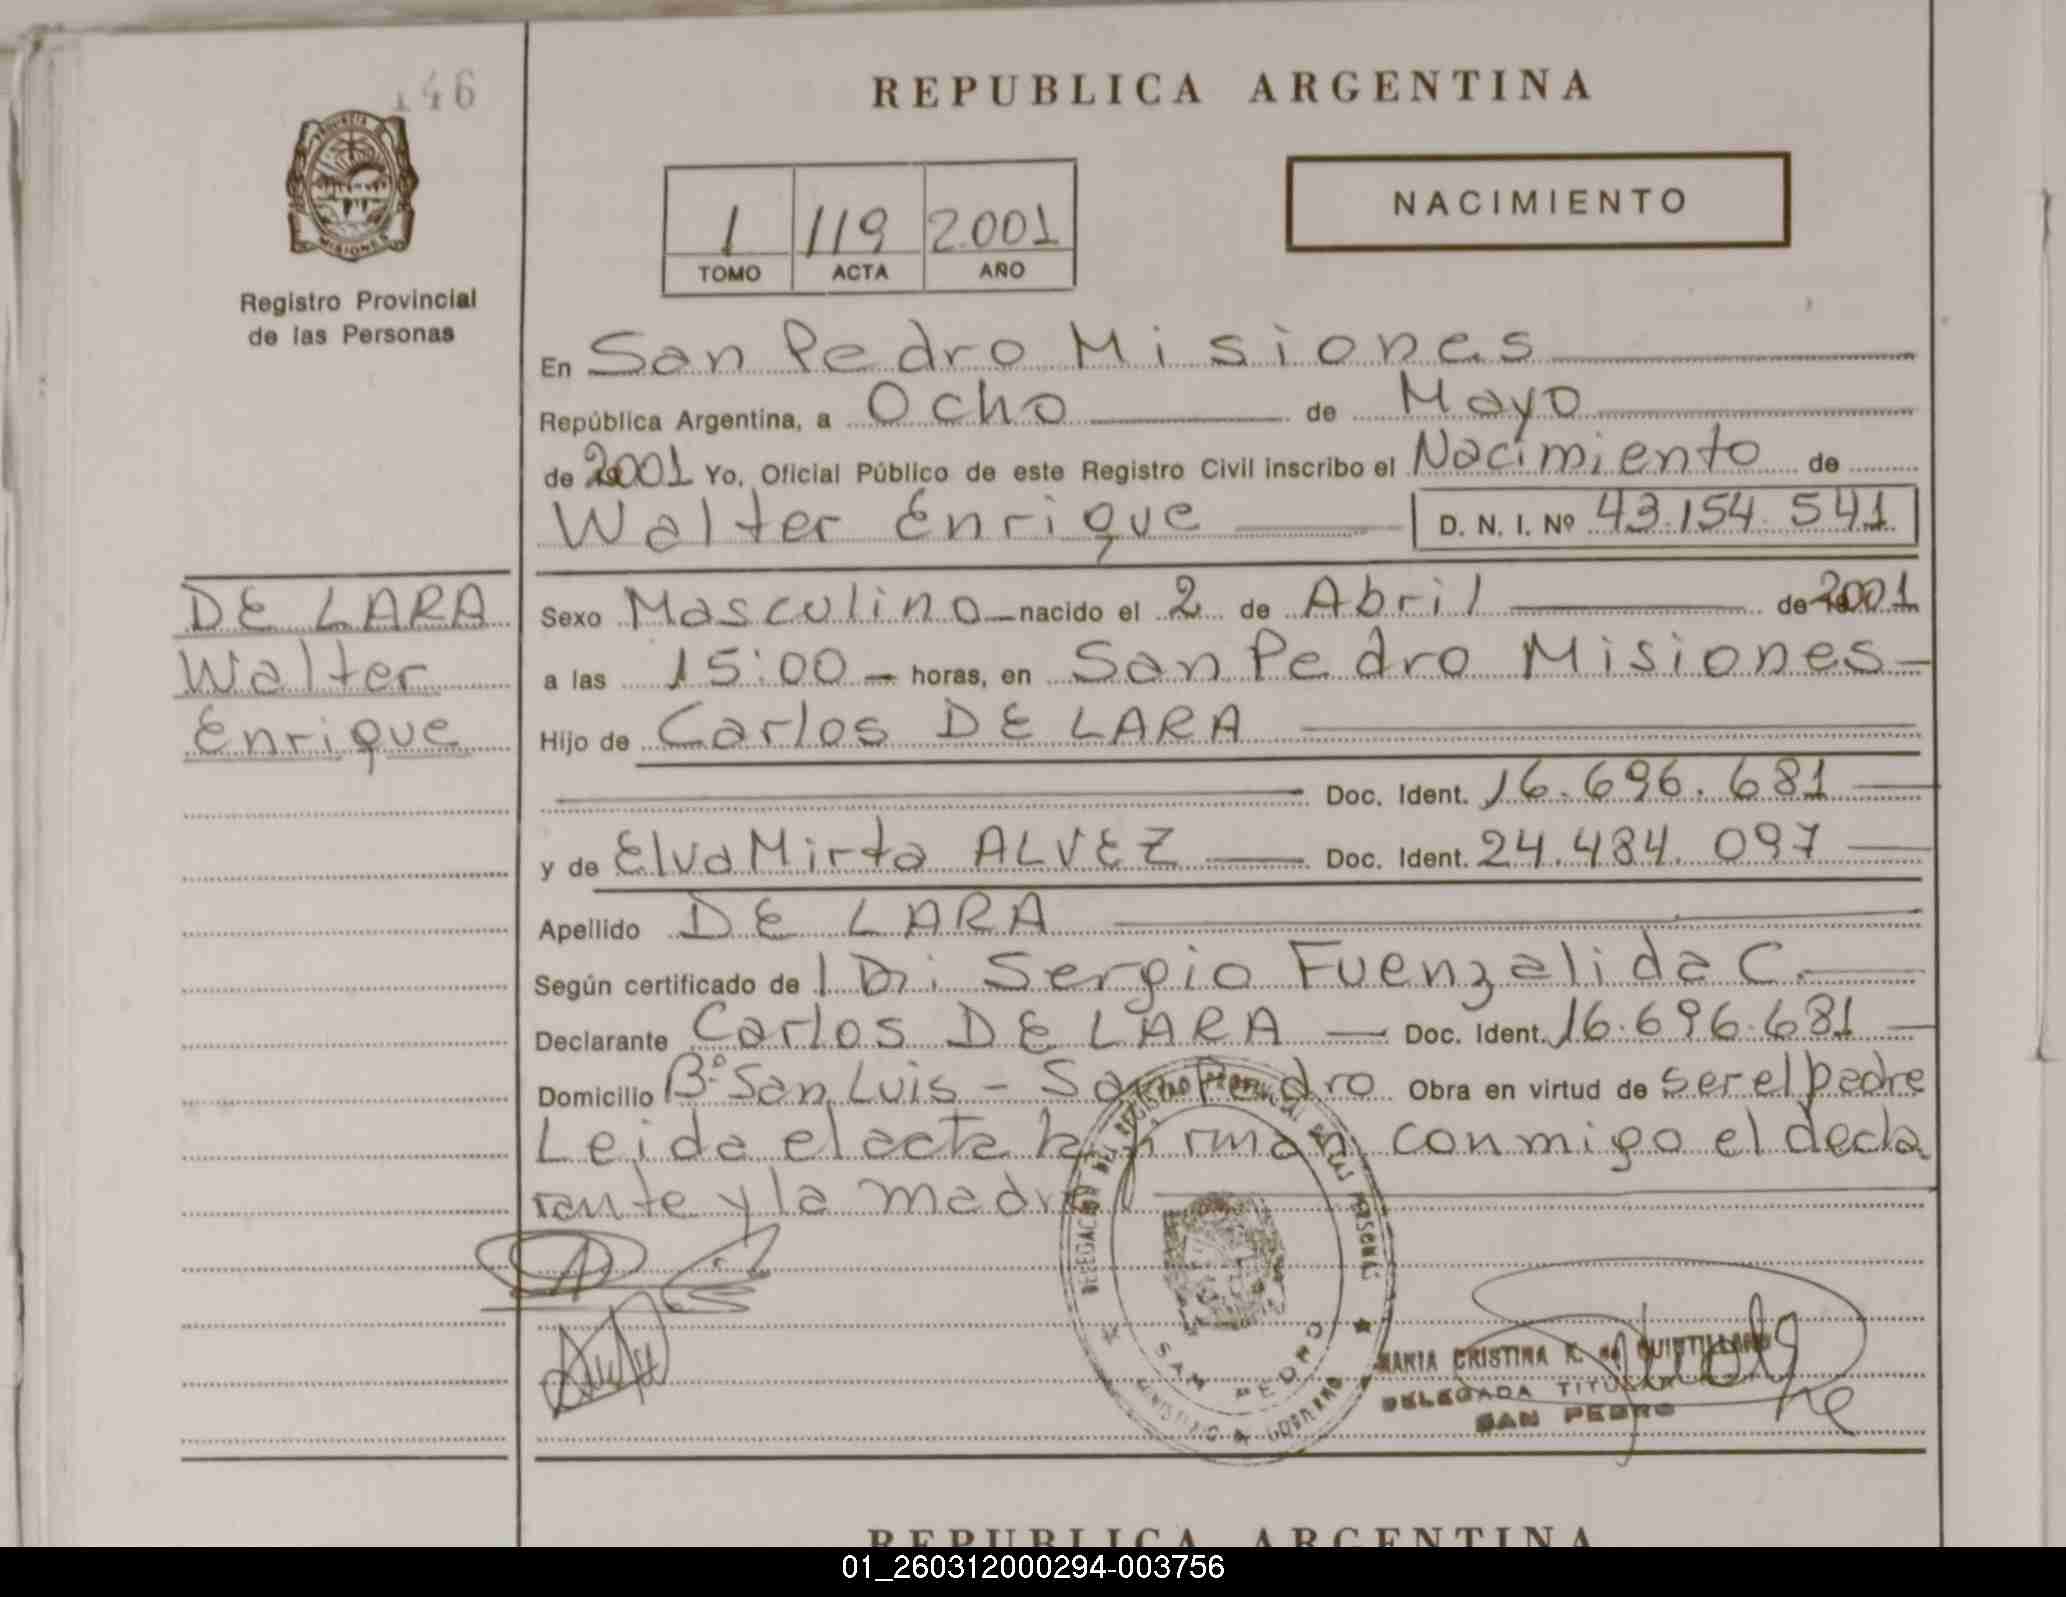 146
REPUBLICA ARGENTINA
PROVINCIA DE
MISIONES
Registro Provincial
de las Personas
1 119 2.001
TOMO ACTA AÑO
NACIMIENTO
En San Pedro Misiones
República Argentina, a Ocho de Mayo
de 2001 Yo, Oficial Público de este Registro Civil inscribo el Nacimiento de
Walter Enrique D. N. I. Nº 43.154.541
DE LARA
Walter
Enrique
Sexo Masculino nacido el 2 de Abril de 2001
a las 15:00 horas, en San Pedro Misiones
Hijo de Carlos DE LARA
Doc. Ident. 16.696.681
y de Elva Mirta ALVEZ Doc. Ident. 24.484.097
Apellido DE LARA
Según certificado de Sergio Fuenzalida C.
Declarante Carlos DE LARA Doc. Ident. 16.696.681
Domicilio Bº San Luis - San Pedro Obra en virtud de ser el padre
Leida el acta la firman conmigo el decla
rante y la madre
DELEGACION DEL REGISTRO PROVINCIAL DE LAS PERSONAS
SAN PEDRO
MARIA CRISTINA K. de
DELEGADA TITULAR
SAN PEDRO
REPUBLICA ARGENTINA
01_260312000294-003756